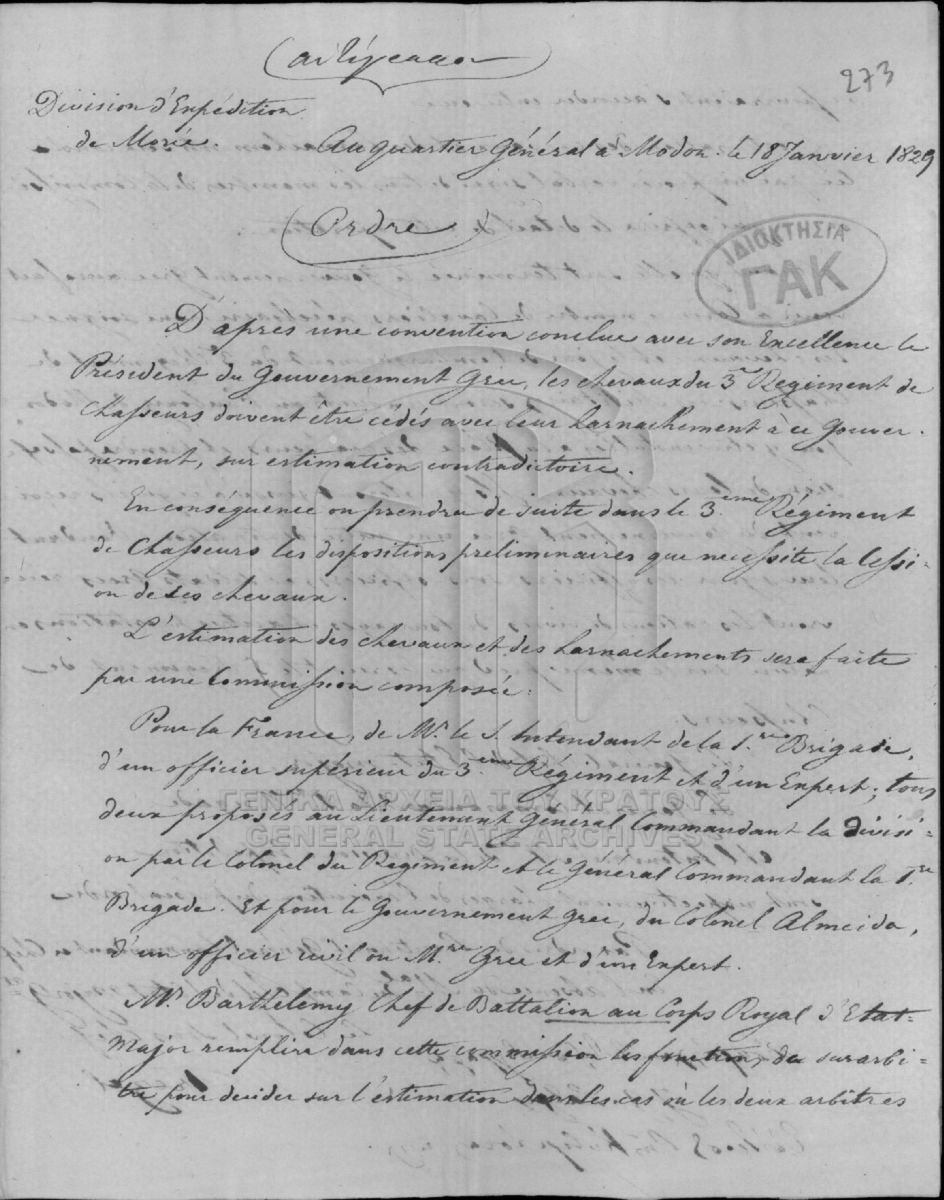 αντίγραφον
273
Division d'Expédition
de Morée.
Au quartier Général a Modon. le 18 Janvier 1829
Ordre
ΙΔΙΟΚΤΗΣΙΑ
ΓΑΚ
D'apres une convention conclue avec son Excellence le
Président du Gouvernement Grec, les chevaux du 3.me Regiment de
Chasseurs doivent être cédés avec leur harnachement a ce Gouver-
nement, sur estimation contradictoire.
En conséquence on prendra de suite dans le 3.eme Régiment
de Chasseurs les dispositions préliminaires que necessite la Cessi-
on de ses chevaux.
L'estimation des chevaux et des harnachements sera faite
par une Commission composée:
Pour la France, de Mr. le S. Intendant de la 1.re Brigade,
d'un officier supérieur du 3.eme Régiment et d'un Expert; tous
deux proposés au Lieutenant Général Commandant la Divisi-
on par le Colonel du Regiment et le Général Commandant la 1.re
Brigade. Et pour le Gouvernement Grec, du Colonel Almeida,
d'un officier civil ou M.re Grec et d'un Expert.
Mr. Barthelemy Chef de Battalion au Corps Royal d'Etat-
Major remplira dans cette commission les fonctions de surarbi-
tre pour decider sur l'estimation dans les cas où les deux arbitres
ΓΕΝΙΚΑ ΑΡΧΕΙΑ ΤΟΥ ΚΡΑΤΟΥΣ
GENERAL STATE ARCHIVES